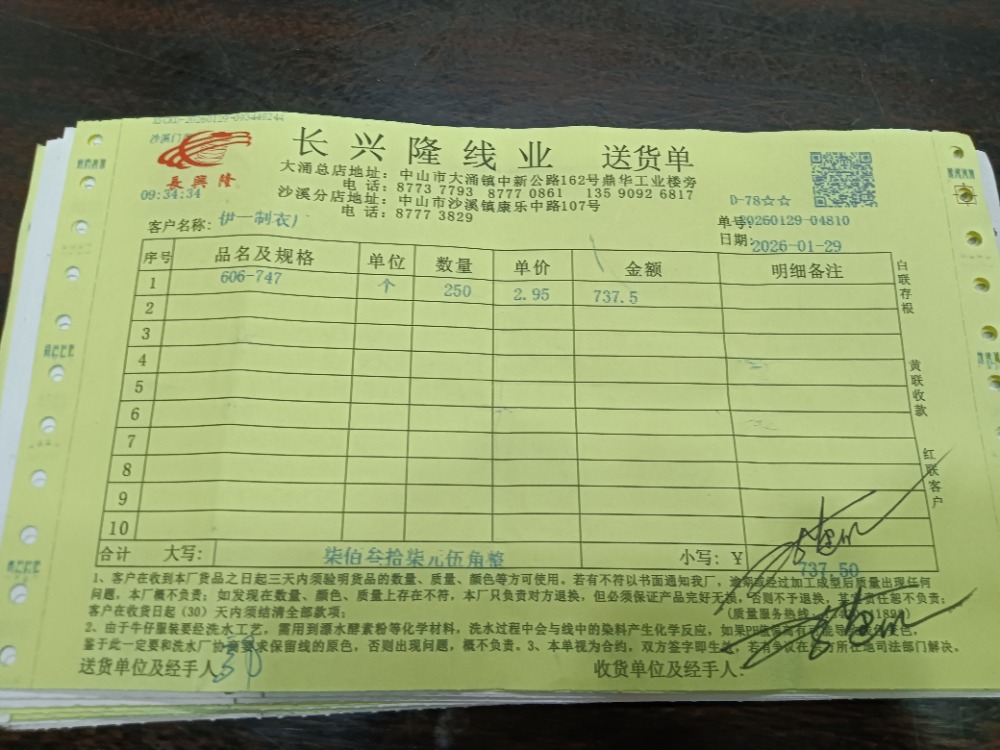 沙溪门
長興隆
09:34:34
长兴隆线业 送货单
大涌总店地址：中山市大涌镇中新公路162号鼎华工业楼旁
电话：8773 7793 8777 0861 135 9092 6817
沙溪分店地址：中山市沙溪镇康乐中路107号
电话：8777 3829
D-78☆☆
客户名称：伊一制衣厂
单号：20260129-04810
日期：2026-01-29
序号 品名及规格 单位 数量 单价 金额 明细备注
1 606-747 个 250 2.95 737.5
2
3
4
5
6
7
8
9
10
白联存根
黄联收款
红联客户
合计 大写： 柒佰叁拾柒元伍角整 小写：￥ 737.50
1、客户在收到本厂货品之日起三天内须验明货品的数量、质量、颜色等方可使用，若有不符以书面通知我厂，逾期或经过加工成型后质量出现任何
问题，本厂概不负责；如发现在数量、颜色、质量上存在不符，本厂只负责对方退换，但必须保证产品完好无损，否则不予退换，其责任恕不负责；
客户在收货日起（30）天内须结清全部款项； （质量服务热线：
2、由于牛仔服装要经洗水工艺，需用到漂水酵素粉等化学材料，洗水过程中会与线中的染料产生化学反应，如果PH值
鉴于此一定要和洗水厂协调要求保留线的原色，否则出现问题，概不负责。3、本单视为合约，双方签字即生效，若有争议在卖方所在地司法部门解决。
送货单位及经手人： 收货单位及经手人：